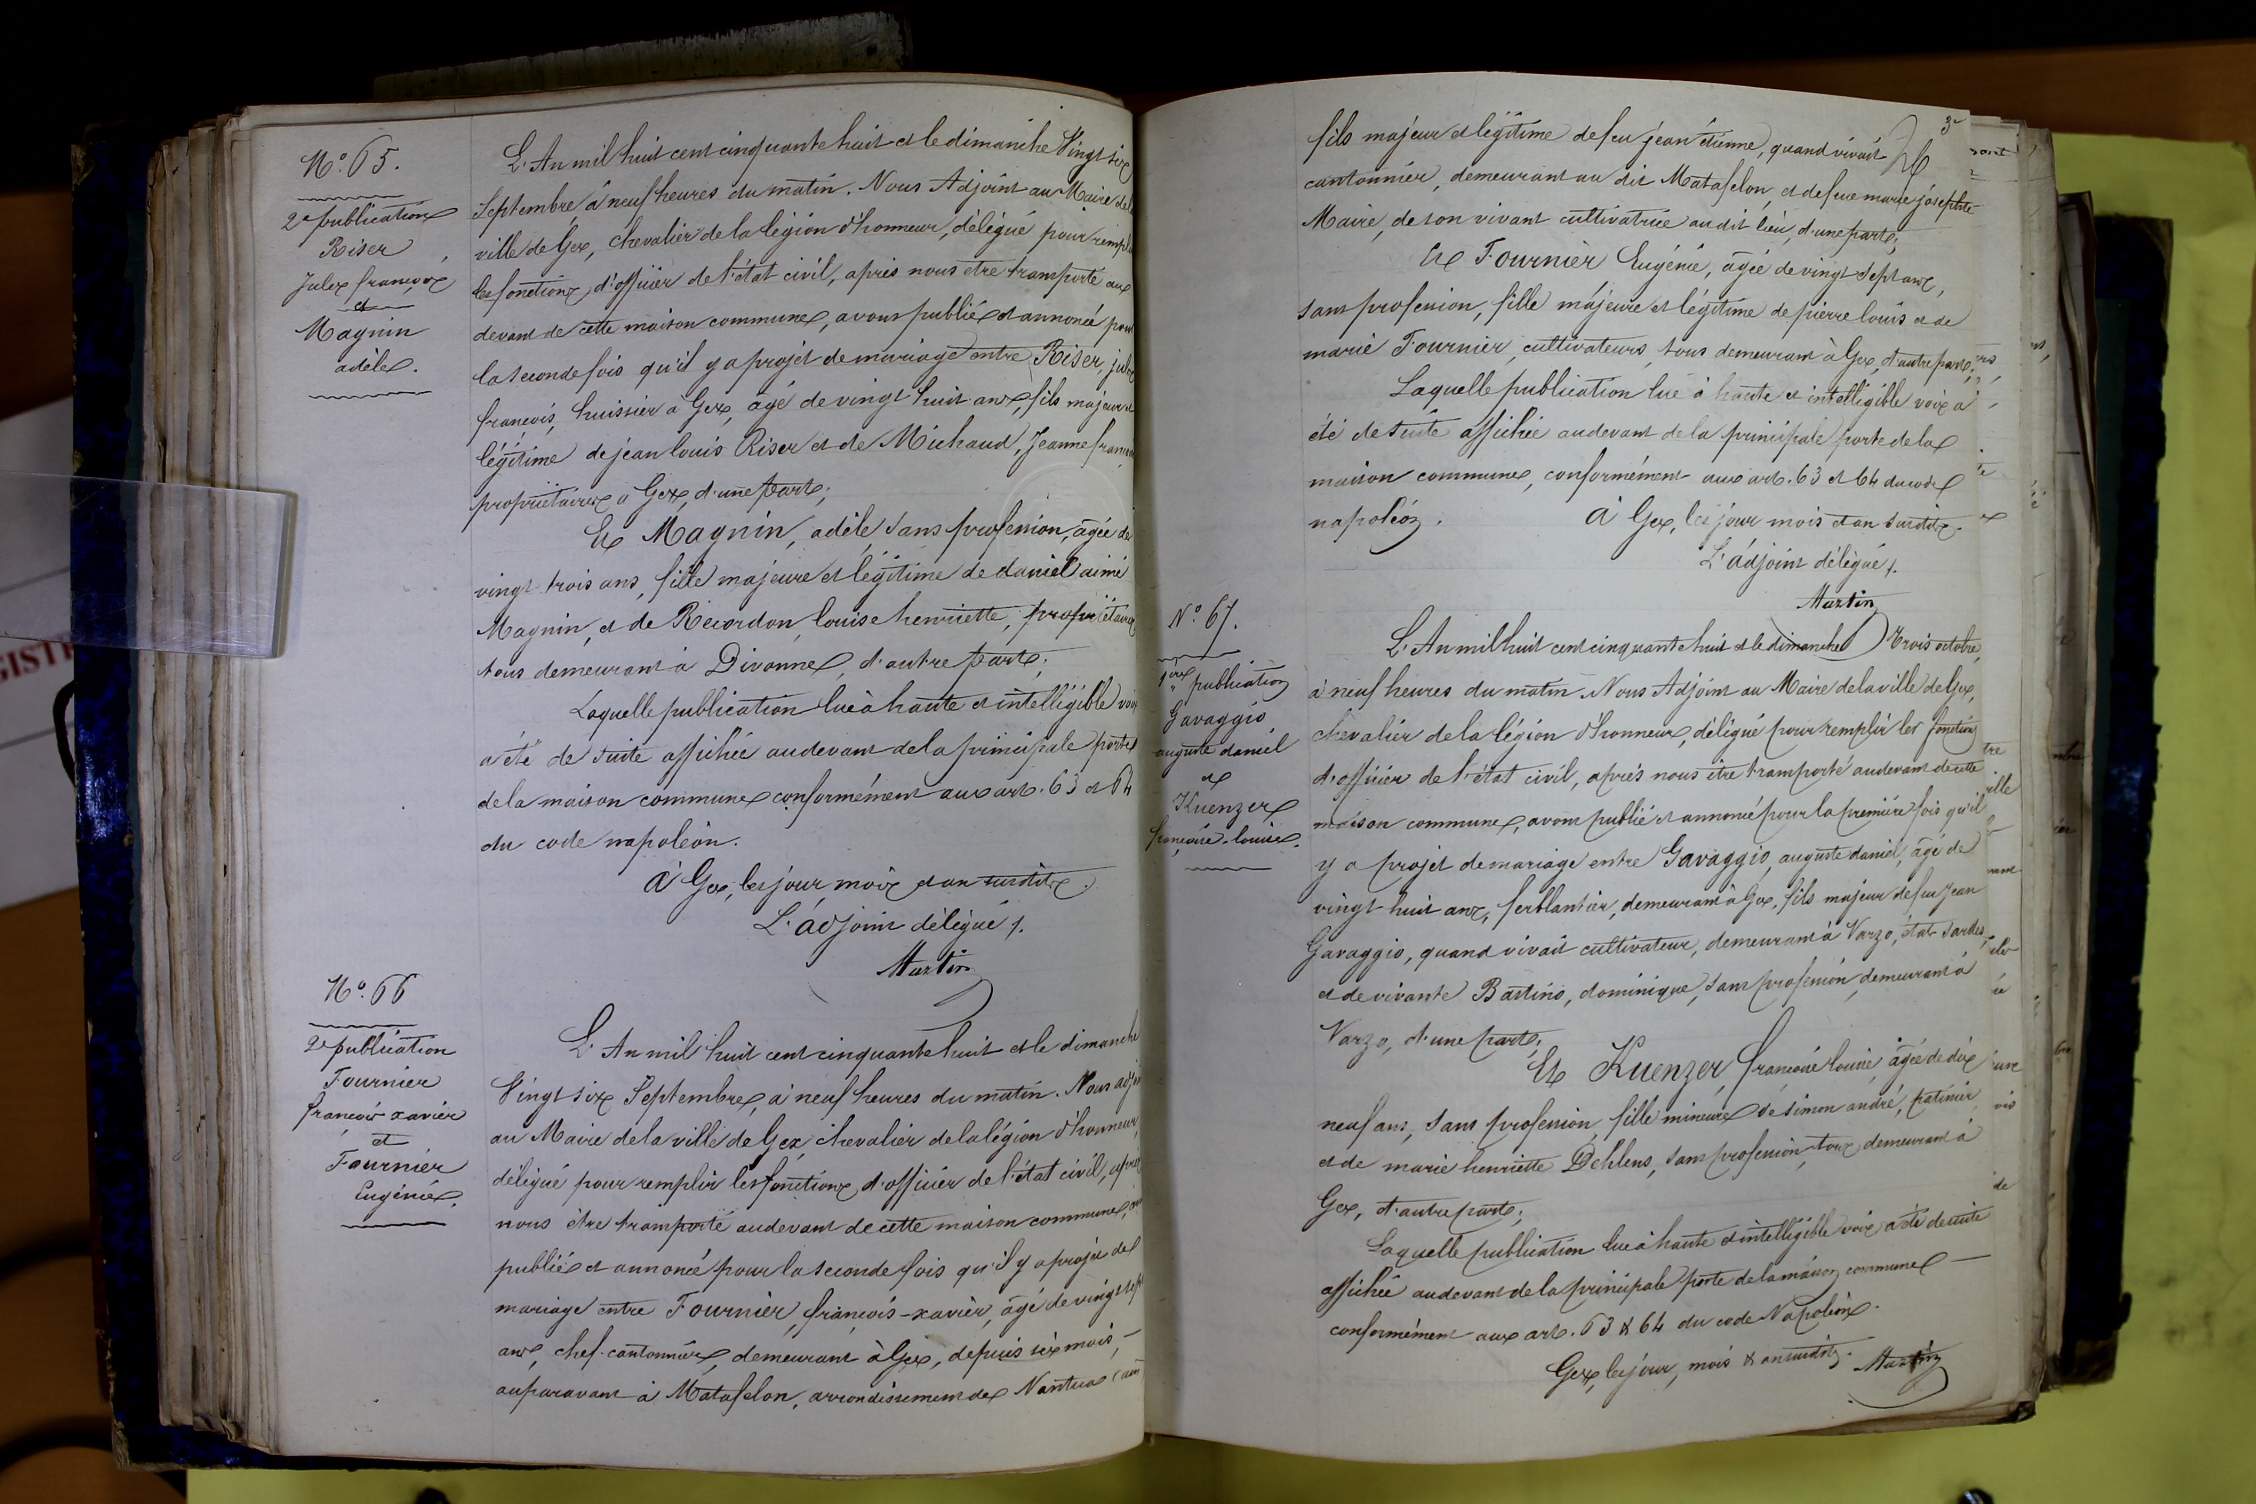 N° 65.
2e publication
Riser
Jules françois
et
Magnin
adèle.
L'An mil huit cent cinquante huit et le dimanche Vingt six
Septembre à neuf heures du matin. Nous Adjoint au Maire de la
ville de Gex, chevalier de la légion d'honneur, délégué pour rempl
les fonctions d'officier de l'état civil, après nous être transporté au
devant de cette maison commune, avons publié et annoncé pour
la seconde fois qu'il y a projet de mariage entre Riser, jules
francois, huissier à Gex, âgé de vingt huit ans, fils majeur et
légitime de jean louis Riser et de Michaud, Jeanne fran
propriétaires à Gex, d'une part;
Et Magnin, adèle, sans profession, âgée de
vingt trois ans, fille majeure et légitime de daniel aimé
Magnin, et de Recordon, louise henriette, propriétaires
tous demeurant à Divonne, d'autre part;
Laquelle publication lue à haute et intelligible voix
a été de suite affichée au devant de la principale porte
de la maison commune conformément aux art. 63 et 64
du code napoléon.
À Gex, les jour, mois et an susdits.
L'adjoint délégué /.
Martin
N° 66
2e publication
Fournier
françois xavier
et
Fournier
Eugénie.
L'An mil huit cent cinquante huit et le dimanche
Vingt six Septembre, à neuf heures du matin. Nous adjoin
au Maire de la ville de Gex chevalier de la légion d'honneur,
délégué pour remplir les fonctions d'officier de l'état civil, après
nous être transporté au devant de cette maison commune,
publié et annoncé pour la seconde fois qu'il y a projet de
mariage entre Fournier, françois-xavier, âgé de vingt sept
ans, chef-cantonnier, demeurant à Gex, depuis six mois,
auparavant à Matafelon, arrondissement de Nantua (ain
fils majeur et légitime de feu jean étienne, quand vivait
cantonnier, demeurant au dit Matafelon, et de feue marie josephte
Maire, de son vivant cultivatrice au dit lieu, d'une part;
Et Fournier Eugénie, âgée de vingt sept ans,
sans profession, fille majeure et légitime de pierre louis et de
marie Fournier, cultivateurs, tous demeurant à Gex, d'autre part;
Laquelle publication lue à haute et intelligible voix a
été de suite affichée au devant de la principale porte de la
maison commune, conformément aux art. 63 et 64 du code
napoléon. À Gex, les jour mois et an susdits.
L'adjoint délégué /.
Martin
N° 67.
1ère publication
Gavaggio
auguste daniel
et
Kuenzer
françoise-louise.
L'An mil huit cent cinquante huit et le dimanche Trois octobre,
à neuf heures du matin. Nous Adjoint au Maire de la ville de Gex,
chevalier de la légion d'honneur, délégué pour remplir les fonctions
d'officier de l'état civil, après nous être transporté au devant de cette
maison commune, avons publié et annoncé pour la première fois qu'il
y a projet de mariage entre Gavaggio, auguste daniel, âgé de
vingt huit ans, ferblantier, demeurant à Gex, fils majeur de feu Jean
Gavaggio, quand vivait cultivateur, demeurant à Varzo, état Sardes,
et de vivante Bastino, dominique, sans profession, demeurant à
Varzo, d'une part;
Et Kuenzer, françoise louise, âgée de dix
neuf ans, sans profession, fille mineure de simon andré, patinier
et de marie henriette Dehlens, sans profession, tous demeurant à
Gex, d'autre part;
Laquelle publication lue à haute et intelligible voix, a été de suite
affichée au devant de la principale porte de la maison commune
conformément aux art. 63 & 64 du code Napoléon.
Gex, les jour, mois & an susdits. Martin